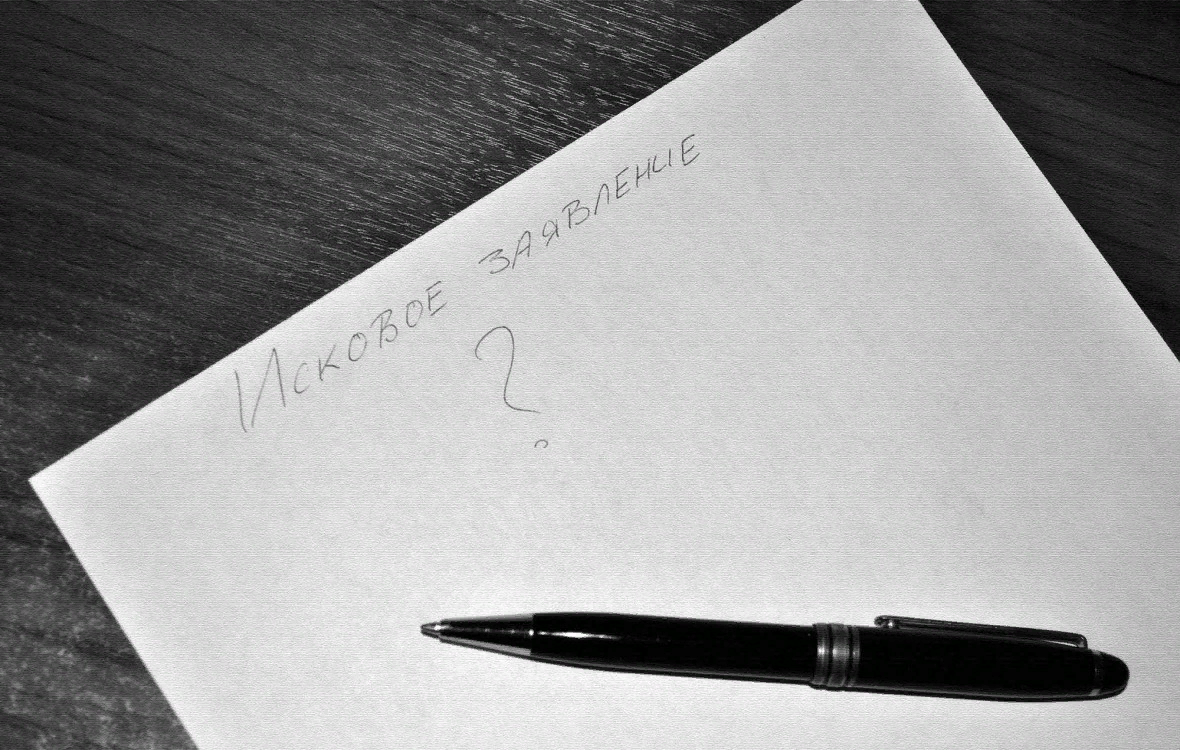 Исковое заявление
?